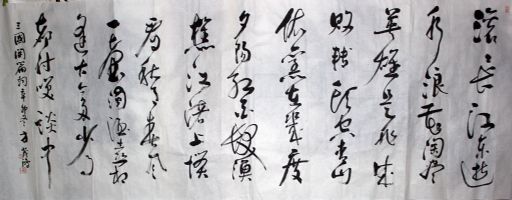 滚々长江东逝
水浪花淘尽
英雄是非成
败转头空青山
依旧在几度
夕阳红白发渔
樵江渚上惯
看秋月春风
一壶浊酒喜相
逢古今多少事
都付笑谈中
三國開篇词辛卯冬